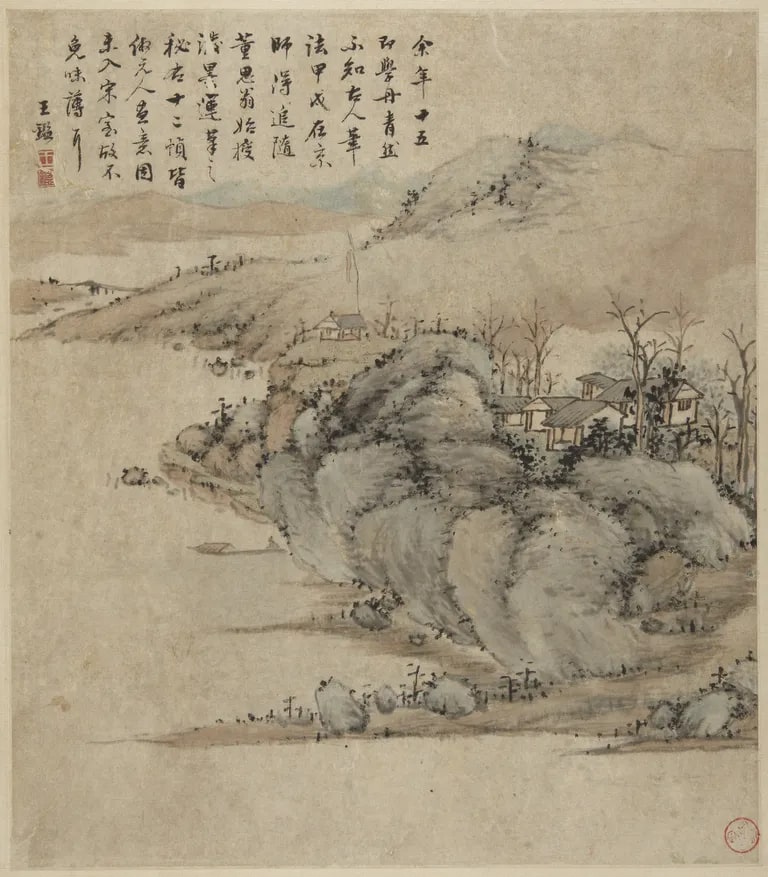 余年十五
即學丹青然
不知古人筆
法甲戌在京
師得追隨
董思翁始授
墨運筆之
秘右十二幀皆
倣元人畫意因
未入宋室故不
免味薄耳
王鑑